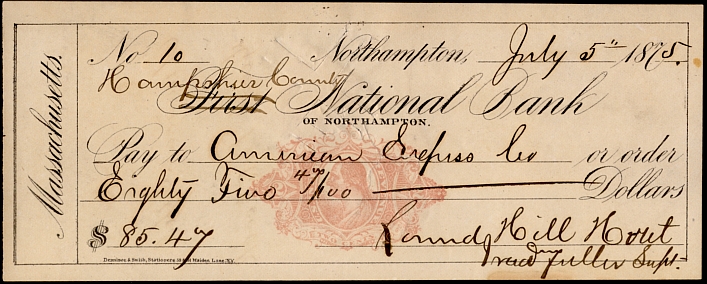 Massachusetts.
No 10 Northampton, July 5" 1875.
Hampshire County
First National Bank
OF NORTHAMPTON.
Pay to American Express Co or order
Eighty Five 47/100 Dollars
$ 85.47 Round Hill Hotel
Fuller Supt.
Dennison & Smith, Stationers Maiden Lane, N.Y.